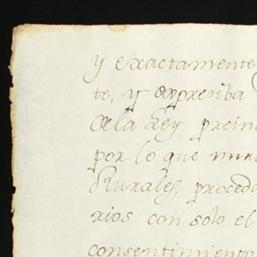 y exactamente
te, y exprenba
dela Ley, prein
por lo que mir
Rurales, proced
rios con solo el
consentimiento